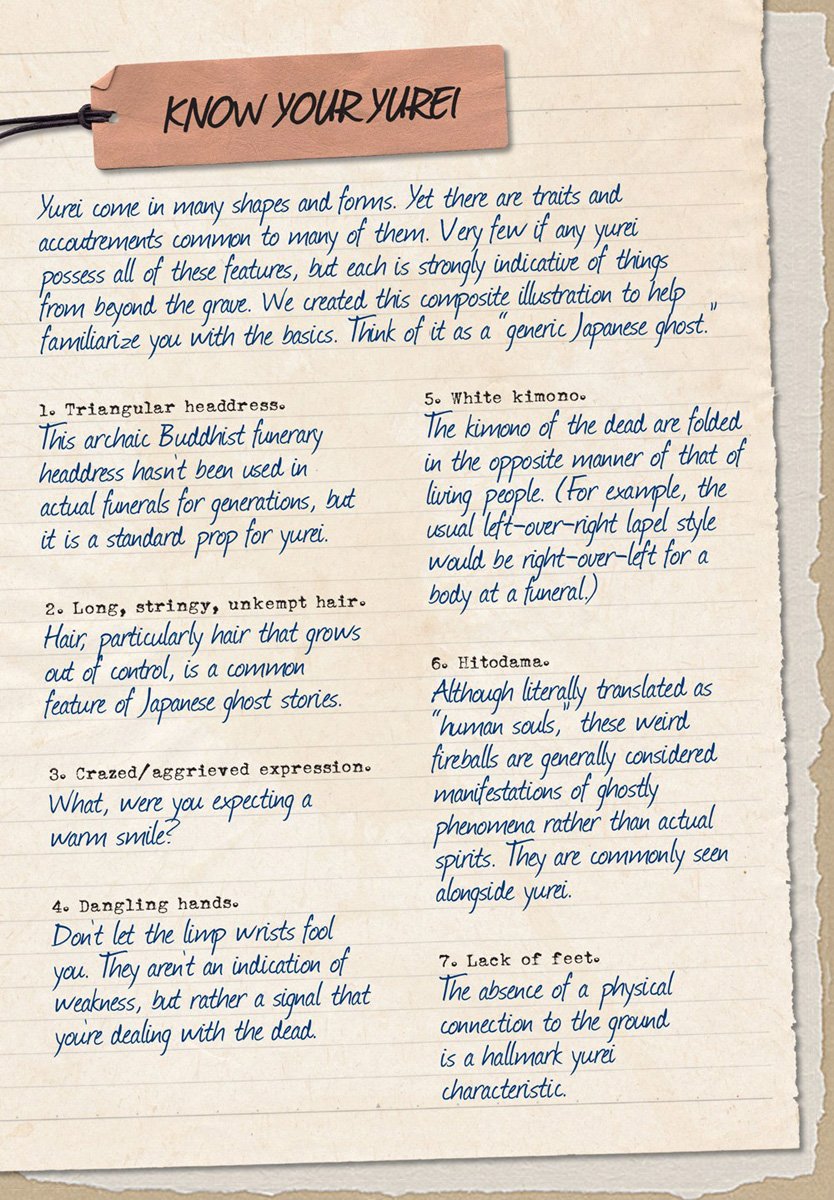 KNOW YOUR YUREI
Yurei come in many shapes and forms. Yet there are traits and
accoutrements common to many of them. Very few if any yurei
possess all of these features, but each is strongly indicative of things
from beyond the grave. We created this composite illustration to help
familiarize you with the basics. Think of it as a "generic Japanese ghost."
1. Triangular headdress.
This archaic Buddhist funerary
headdress hasn't been used in
actual funerals for generations, but
it is a standard prop for yurei.
2. Long, stringy, unkempt hair.
Hair, particularly hair that grows
out of control, is a common
feature of Japanese ghost stories.
3. Crazed/aggrieved expression.
What, were you expecting a
warm smile?
4. Dangling hands.
Don't let the limp wrists fool
you. They aren't an indication of
weakness, but rather a signal that
you're dealing with the dead.
5. White kimono.
The kimono of the dead are folded
in the opposite manner of that of
living people. (For example, the
usual left-over-right lapel style
would be right-over-left for a
body at a funeral.)
6. Hitodama.
Although literally translated as
"human souls," these weird
fireballs are generally considered
manifestations of ghostly
phenomena rather than actual
spirits. They are commonly seen
alongside yurei.
7. Lack of feet.
The absence of a physical
connection to the ground
is a hallmark yurei
characteristic.